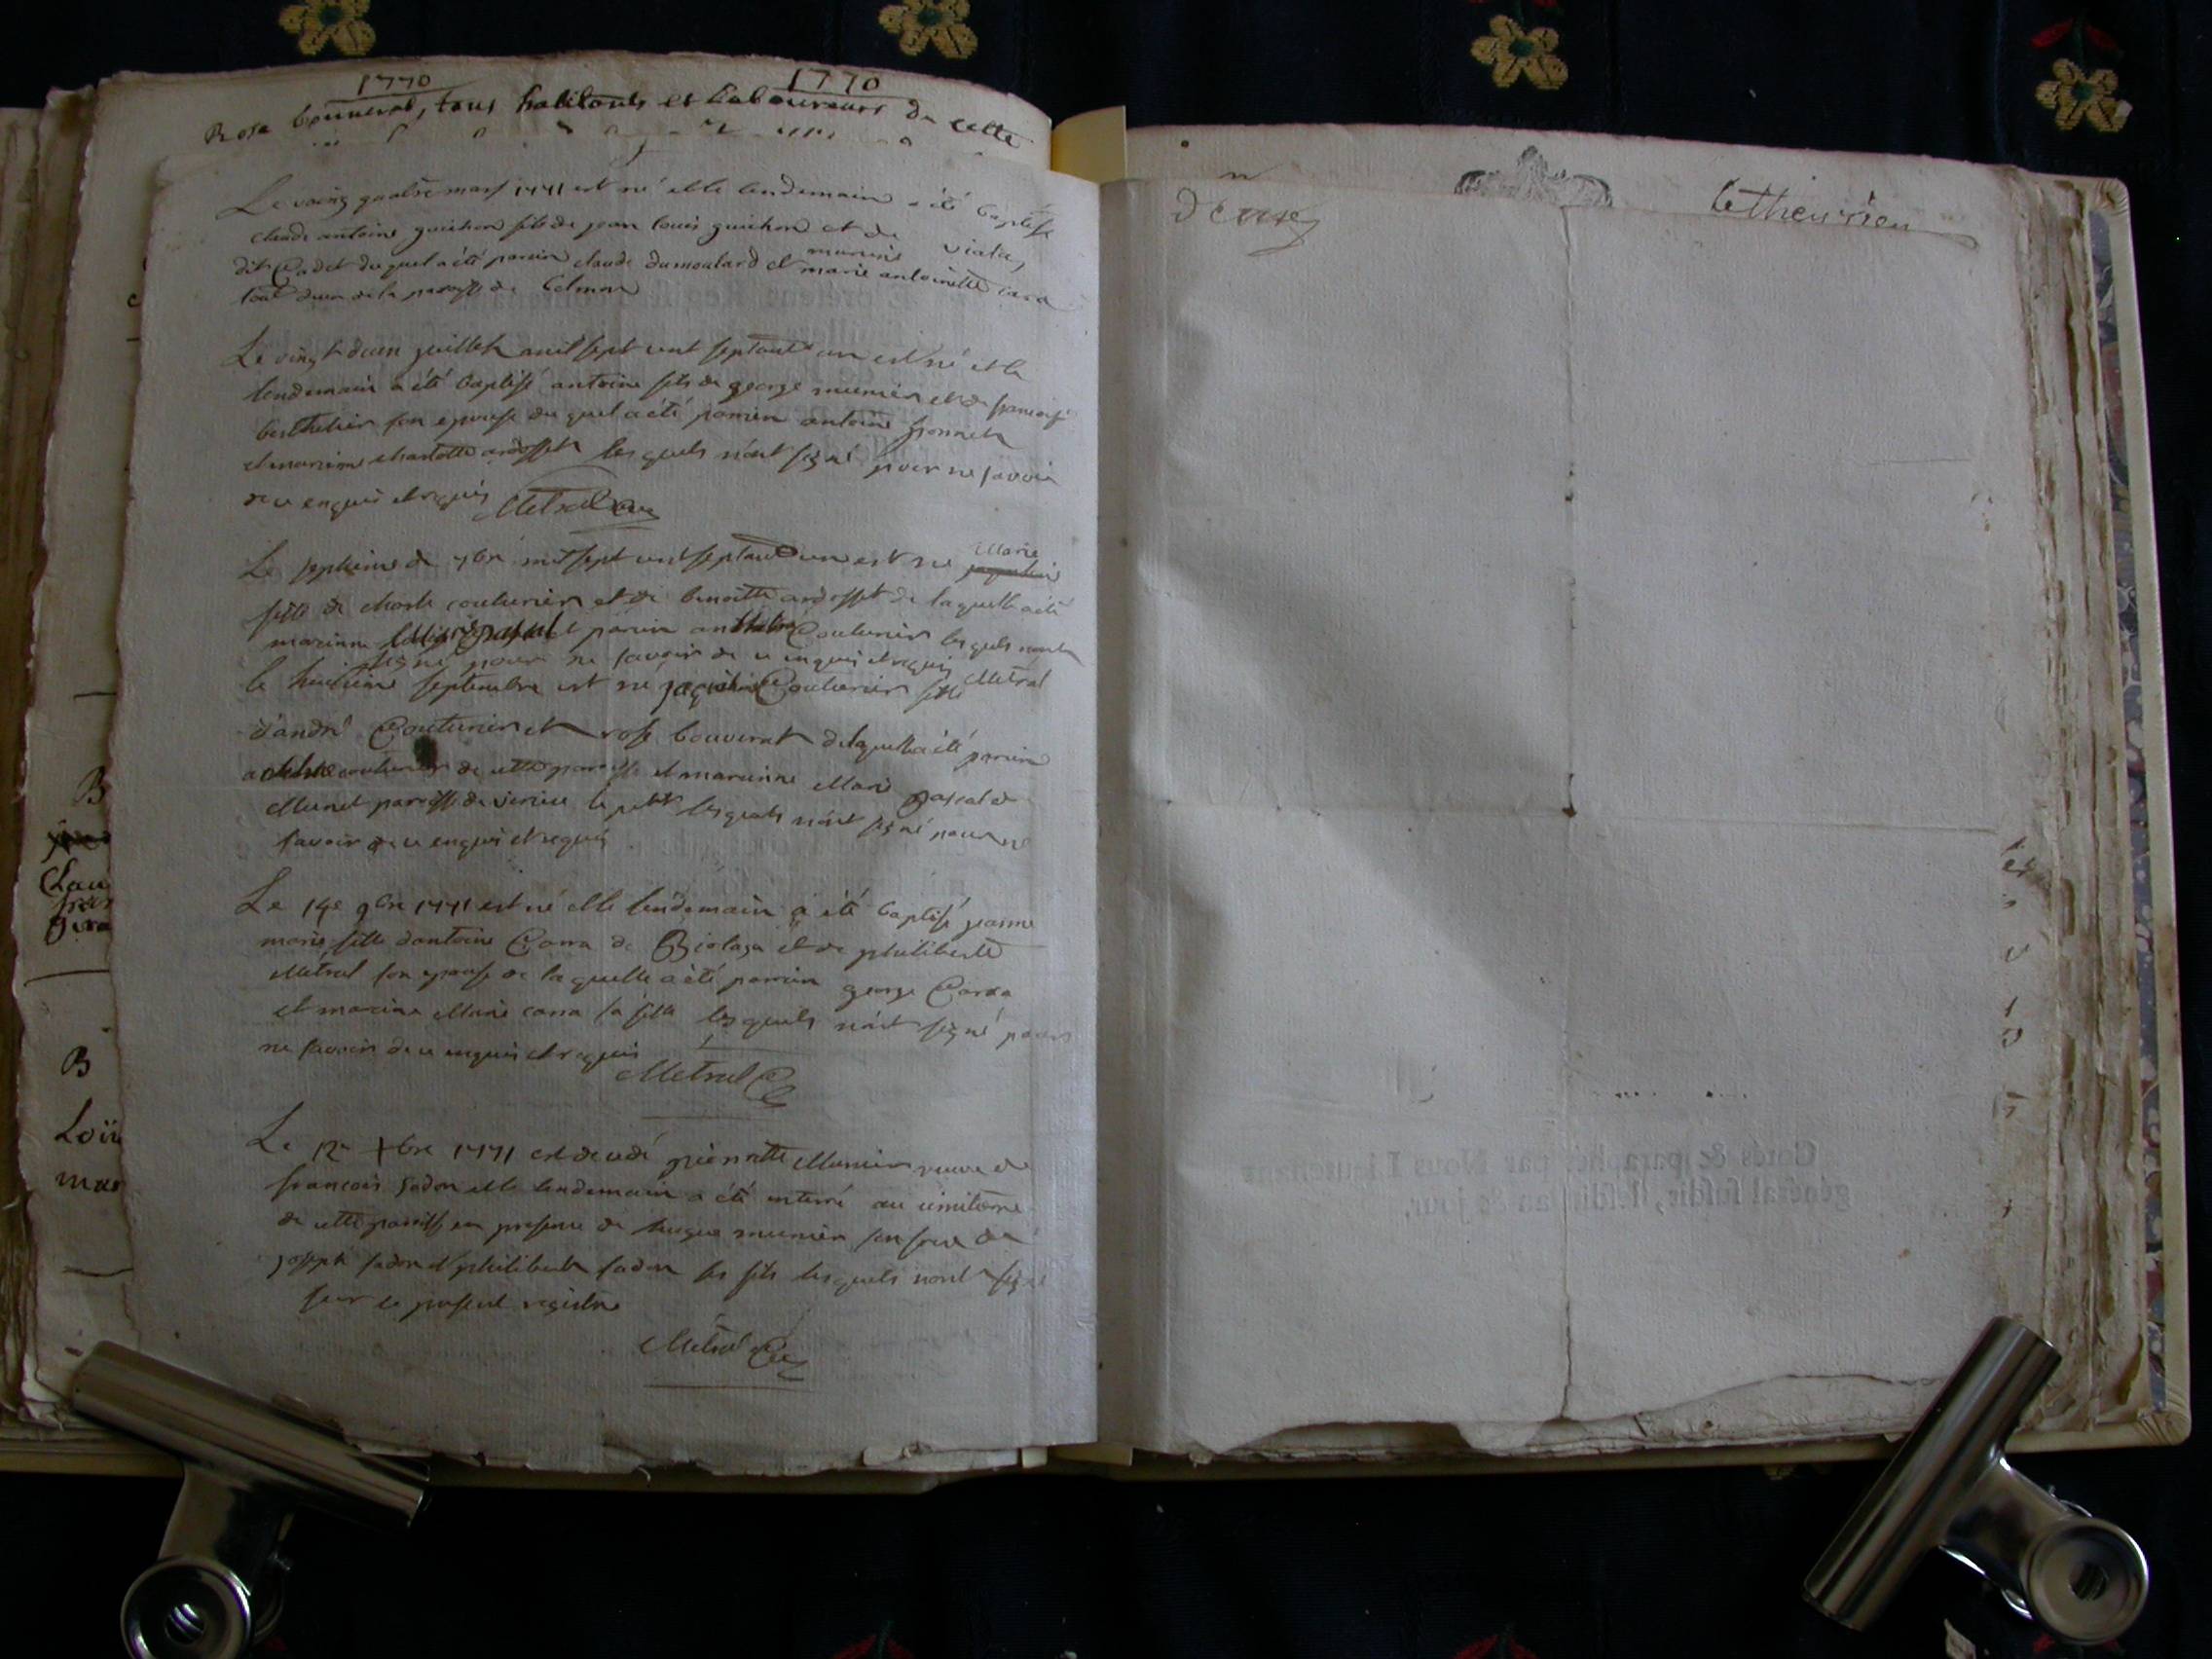 1770 1770
Rose bouverat, tous habitants et Laboureurs de cette
Le vaing quatre mars 1771 est né et le lendemain a été baptisé
claude antoine guichon fils de jean louis guichon et de viala
dit Cadet duquel a été parain claude dumoulard et maraine marie antoinette cara
tout deux de la paroisse de belmon
Le vingt deux juillet mil sept cent septante un est né et le
lendemain a été baptisé antoine fils de george meunier et de francoise
berthelier son epouse du quel a été parain antoine
et maraine charlotte ardosset lesquels n'ont signé pour ne savoir
de ce enquis et requis Metral Cure
Le septieme de 7bre mil sept cent septante un est né Marie
fille de charle couturier et de benoitte ardosset de laquelle a été
maraine pascal et parain anthelme Couturier lesquels nont
signé pour ne savoir de ce enquis et requis Metral
le huitieme septembre est né jaqueline Couturier fille
d'andré Couturier et rose bouverat de laquelle a été parain
anthelme couturier de cette paroisse et maraine Marie pascal de
Munet paroisse de virieu le petit lesquels n'ont signé pour ne
savoir de ce enquis et requis
Le 14e 9bre 1771 est né et le lendemain a été baptisé jeanne
marie fille dantoine Carra de Biolaza et de philiberte
Métral son epouse de laquelle a été parrain george Carra
et maraine Marie carra sa fille lesquels n'ont signé pour
ne savoir de ce enquis et requis
Metral C
Le 12e Xbre 1771 est decedé pierrette Munier veuve de
francois fador et le lendemain a été enterré au cimitiere
de cette paroisse en presence de hugue munier son frere de
joseph fador et philibert fador ses fils lesquels nont signé
sur le present registre
Metral Cure
B
Clau
B
Loüi
mar
deux
letheurieu
Cotés & paraphés par Nous Lieutenant
général susdit, lesdits an & jour.